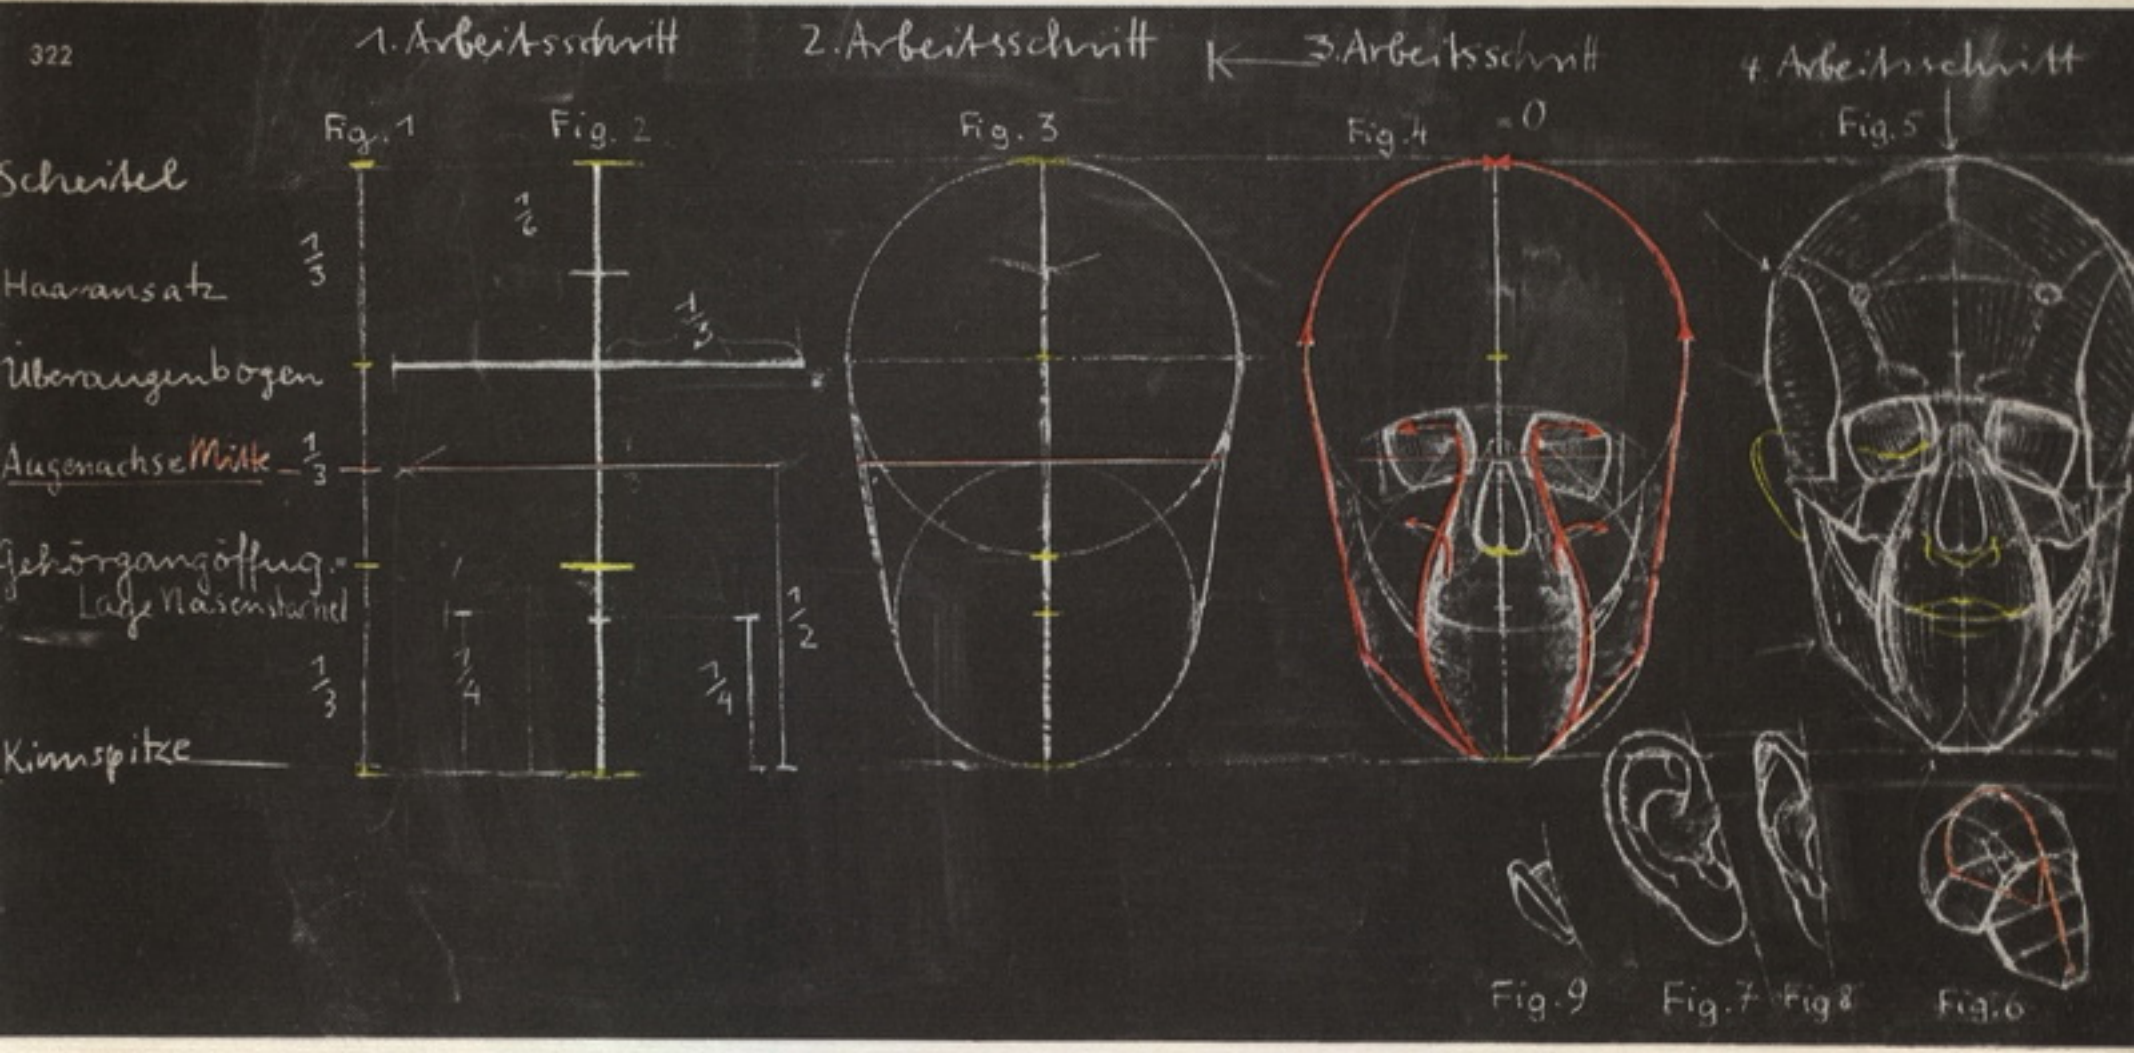 322
1. Arbeitsschritt
2. Arbeitsschritt
3. Arbeitsschritt
4. Arbeitsschritt
Fig. 1
Fig. 2
Fig. 3
Fig. 4
= 0
Fig. 5
Scheitel
1/3
1/6
Haaransatz
1/3
Überaugenbogen
Augenachse Mitte
1/3
Gehörgangöffug. =
Lage Nasenstachel
1/2
1/3
1/4
1/4
Kinnspitze
Fig. 9
Fig. 7
Fig 8
Fig. 6